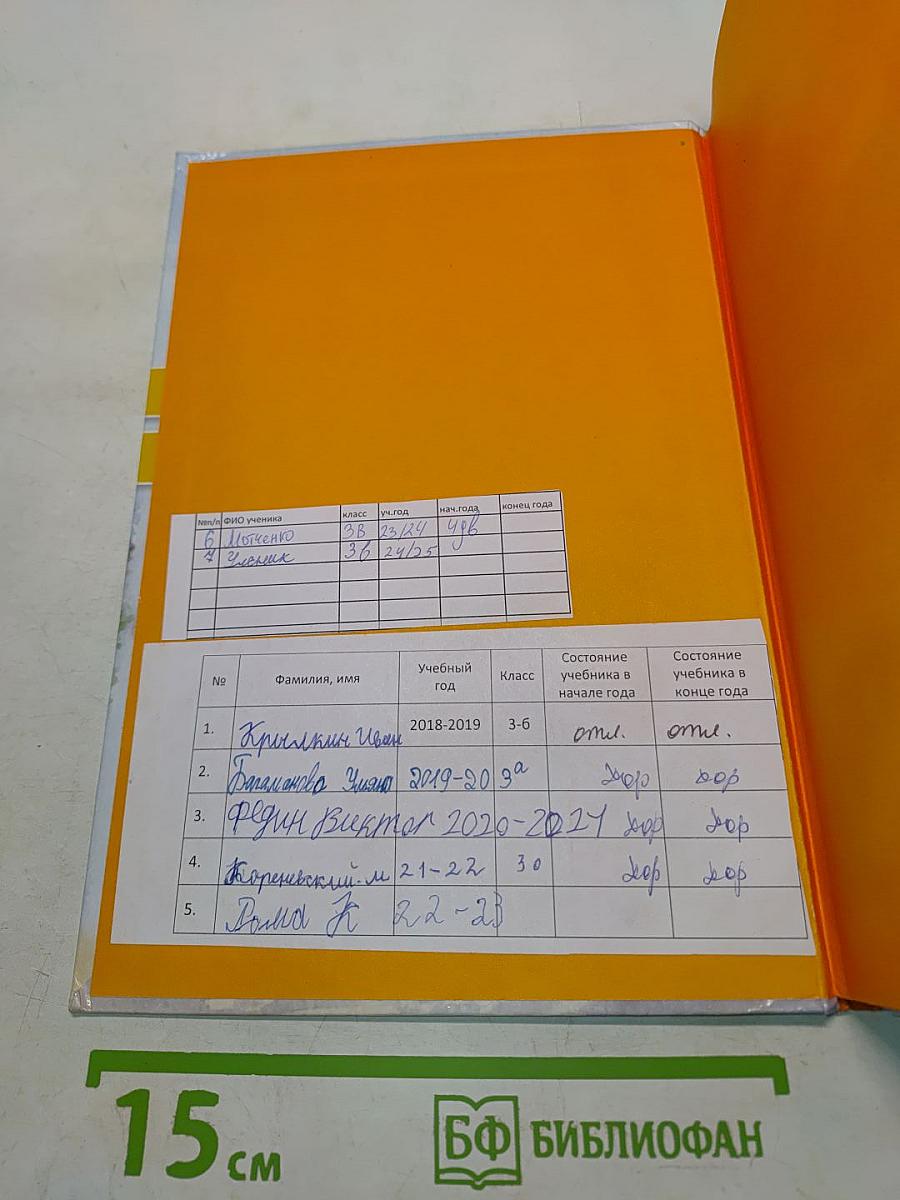 №п/п ФИО ученика класс уч.год нач.года конец года
6 Мотченко 3В 23/24 Удв
7 Ученик 3в 24/25
№ Фамилия, имя Учебный год Класс Состояние учебника в начале года Состояние учебника в конце года
1. Крылкин Иван 2018-2019 3-б отл. отл.
2. 2019-20 3а хор хор
3. Федин Виктор 2020-2021 хор хор
4. Кореневский м 21-22 хор хор
5. Рома К 22-23
15 см БФ БИБЛИОФАН